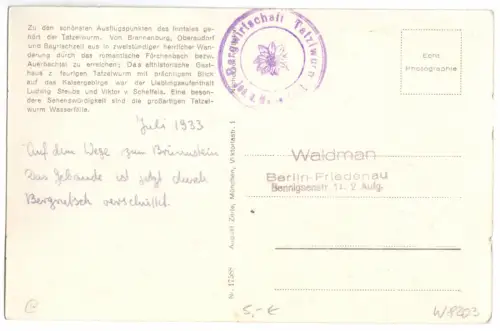 Zu den schönsten Ausflugspunkten des Inntales ge-
hört der Tatzelwurm. Von Brannenburg, Oberaudorf
und Bayrischzell aus in zweistündiger herrlicher Wan-
derung durch das romantische Förchenbach bezw.
Auerbachtal zu erreichen; Das althistorische Gast-
haus z. feurigen Tatzelwurm mit prächtigem Blick
auf das Kaisergebirge war der Lieblingsaufenthalt
Ludwig Steubs und Viktor v. Scheffels. Eine beson-
dere Sehenswürdigkeit sind die großartigen Tatzel-
wurm Wasserfälle.
Bergwirtschaft Tatzlwurm
Echt
Photographie
Juli 1933
Auf dem Wege zum Brünnstein
Das Gebäude ist jetzt durch
Bergrutsch verschüttet.
Waldman
Berlin-Friedenau
Bennigsenstr. 14. 2 Aufg.
August Zerle, München, Viktoriastr. 1
Nr.
5,-€
W8203